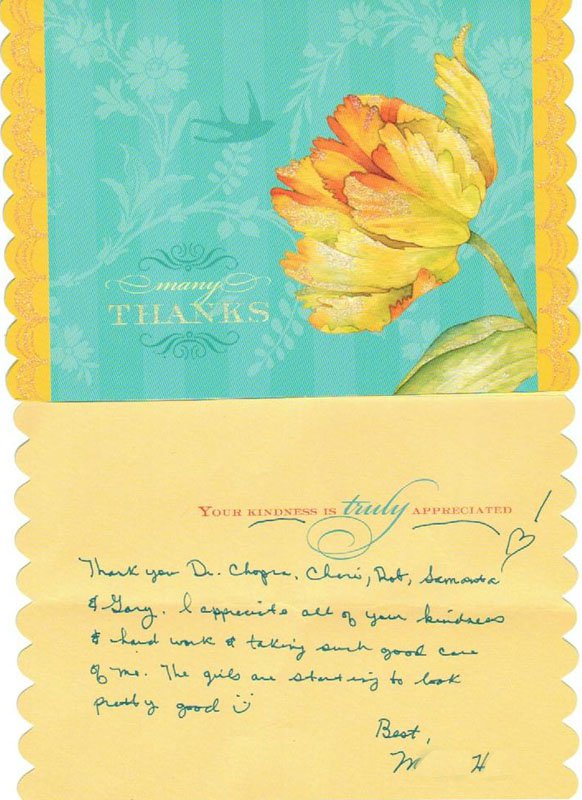 many
THANKS
YOUR KINDNESS IS truly APPRECIATED!
Thank you Dr. Chopra, Cheri, Rob, Samanta
& Gary. I appreciate all of your kindness
& hard work & taking such good care
of me. The girls are starting to look
pretty good
Best,
M H